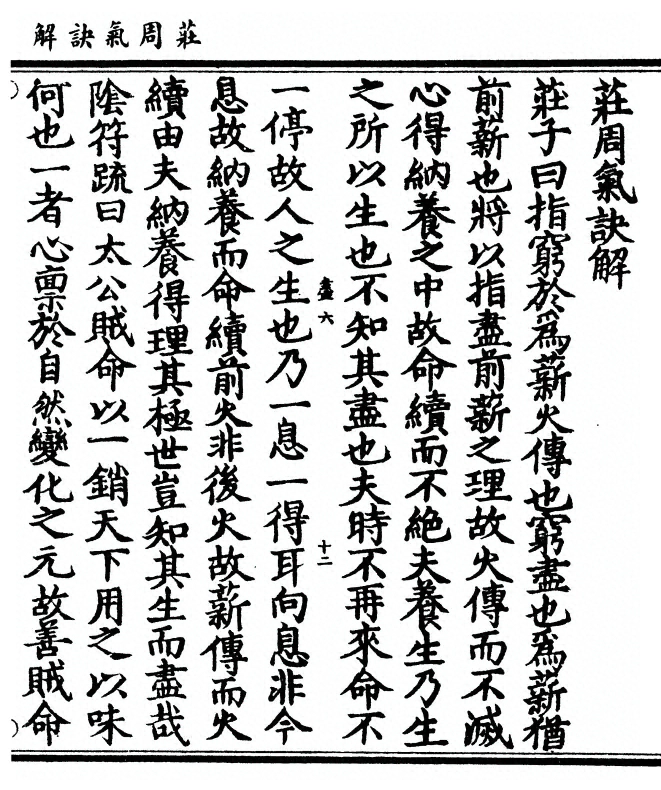 莊周氣訣解
莊周氣訣解
莊子曰指窮於爲薪火傳也窮盡也爲薪猶
前薪也將以指盡前薪之理故火傳而不滅
心得納養之中故命續而不絕夫養生乃生
之所以生也不知其盡也夫時不再來命不
盡六
十二
一停故人之生也乃一息一得耳向息非今
息故納養而命續前火非後火故薪傳而火
續由夫納養得理其極世豈知其生而盡哉
陰符䟽曰太公賊命以一銷天下用之以味
何也一者心禀於自然變化之元故善賊命